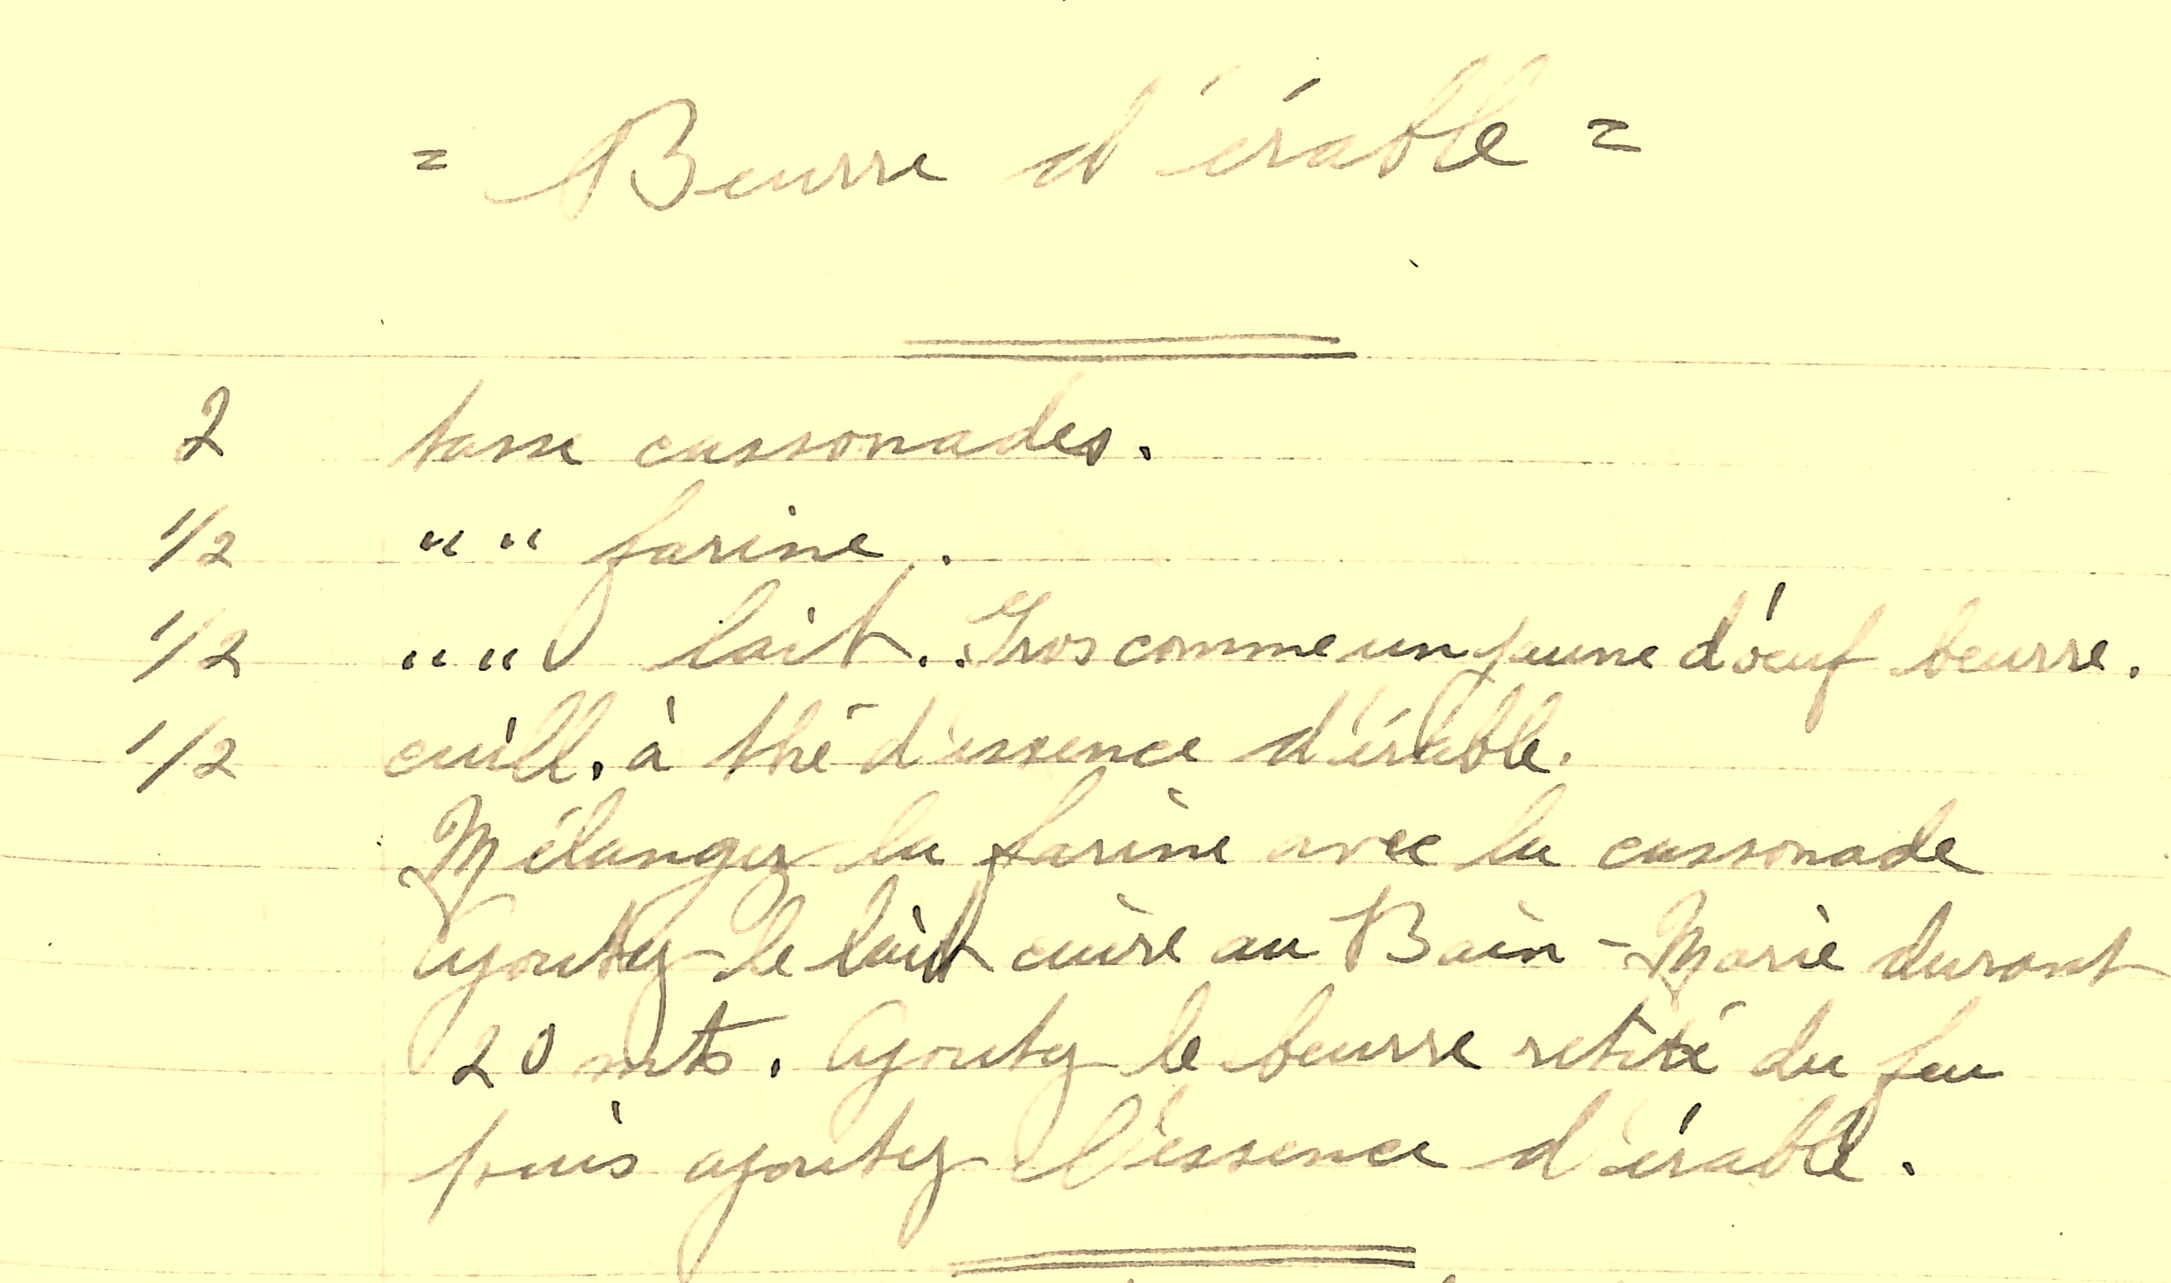 = Beurre d'érable =
2 tasse cassonades.
1/2 " " farine.
1/2 " " lait. Gros comme un jaune d'oeuf beurre.
1/2 cuill. à thé d'essence d'érable.
Mélangez la farine avec la cassonade
Ajoutez le lait cuire au Bain-Marie durant
20 mts. Ajoutez le beurre retiré du feu
puis ajoutez l'essence d'érable.